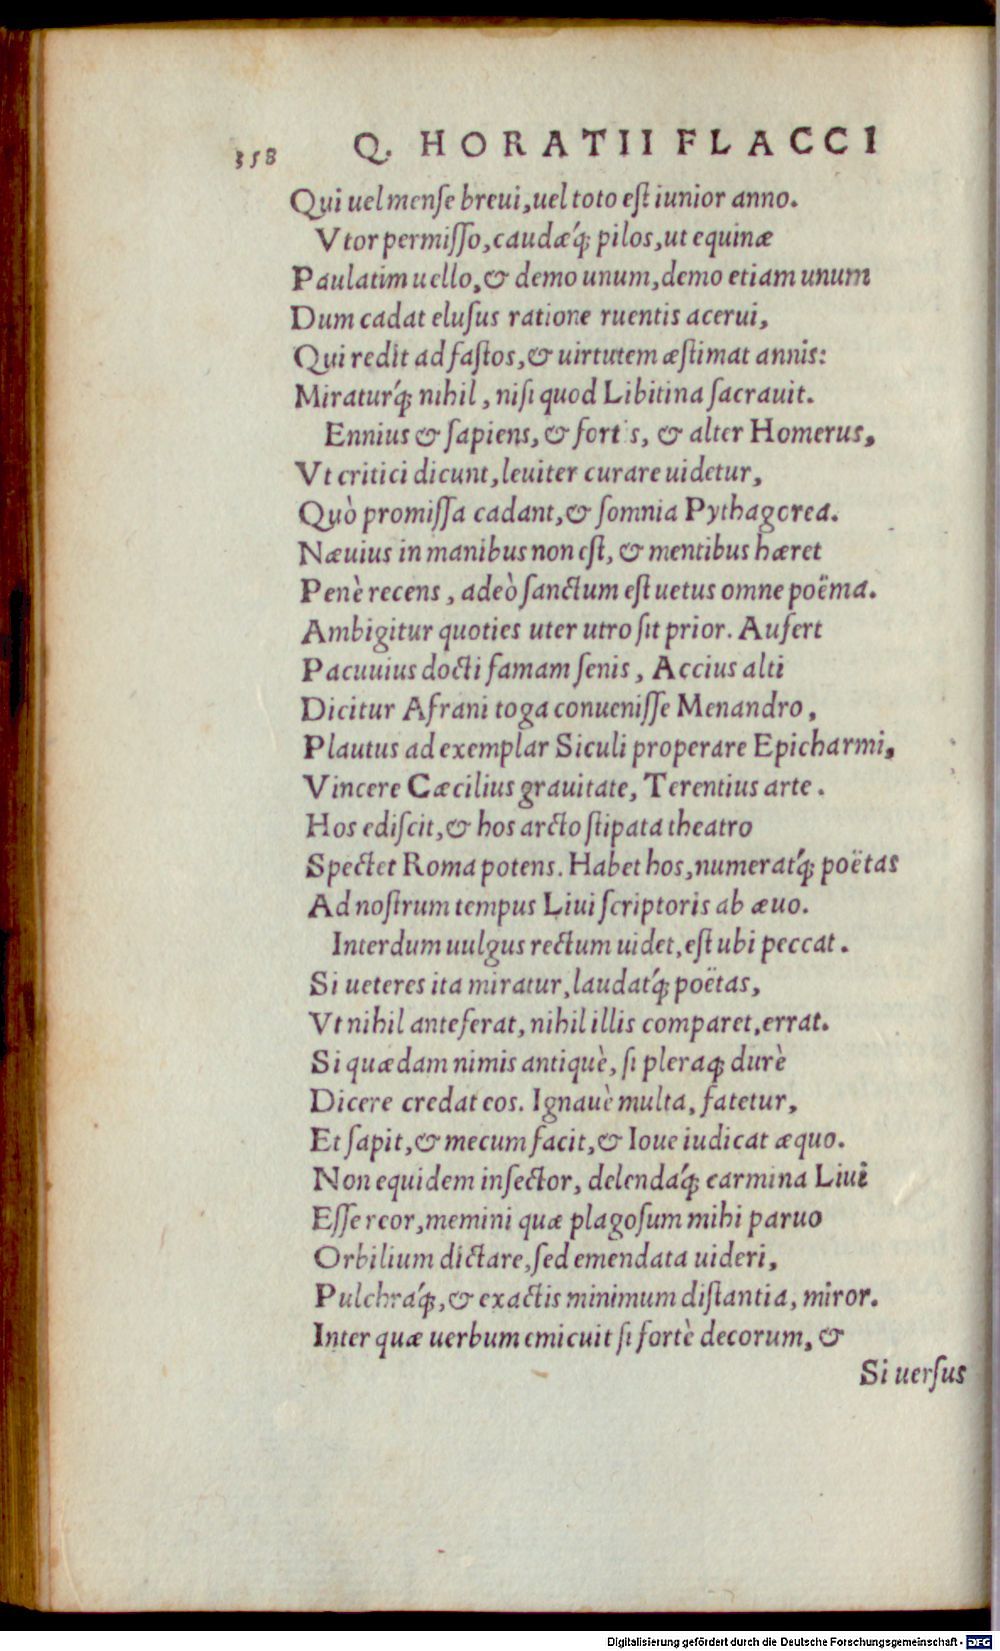 358 Q. HORATII FLACCI
Qui uel mense breui, uel toto est iunior anno.
Vtor permisso, caudæq́; pilos, ut equinæ
Paulatim uello, & demo unum, demo etiam unum
Dum cadat elusus ratione ruentis acerui,
Qui redit ad fastos, & uirtutem æstimat annis:
Miraturq́; nihil, nisi quod Libitina sacrauit.
Ennius & sapiens, & fortis, & alter Homerus,
Vt critici dicunt, leuiter curare uidetur,
Quò promissa cadant, & somnia Pythagorea.
Næuius in manibus non est, & mentibus hæret
Penè recens, adeò sanctum est uetus omne poëma.
Ambigitur quoties uter utro sit prior. Aufert
Pacuuius docti famam senis, Accius alti
Dicitur Afrani toga conuenisse Menandro,
Plautus ad exemplar Siculi properare Epicharmi,
Vincere Cæcilius grauitate, Terentius arte.
Hos ediscit, & hos arcto stipata theatro
Spectet Roma potens. Habet hos, numeratq́; poëtas
Ad nostrum tempus Liui scriptoris ab æuo.
Interdum uulgus rectum uidet, est ubi peccat.
Si ueteres ita miratur, laudatq́; poëtas,
Vt nihil anteferat, nihil illis comparet, errat.
Si quædam nimis antiquè, si pleraq; durè
Dicere credat eos. Ignauè multa, fatetur,
Et sapit, & mecum facit, & Ioue iudicat æquo.
Non equidem insector, delendaq́; carmina Liui
Esse reor, memini quæ plagosum mihi paruo
Orbilium dictare, sed emendata uideri,
Pulchraq́;, & exactis minimum distantia, miror.
Inter quæ uerbum emicuit si fortè decorum, &
Si uersus
Digitalisierung gefördert durch die Deutsche Forschungsgemeinschaft - DFG